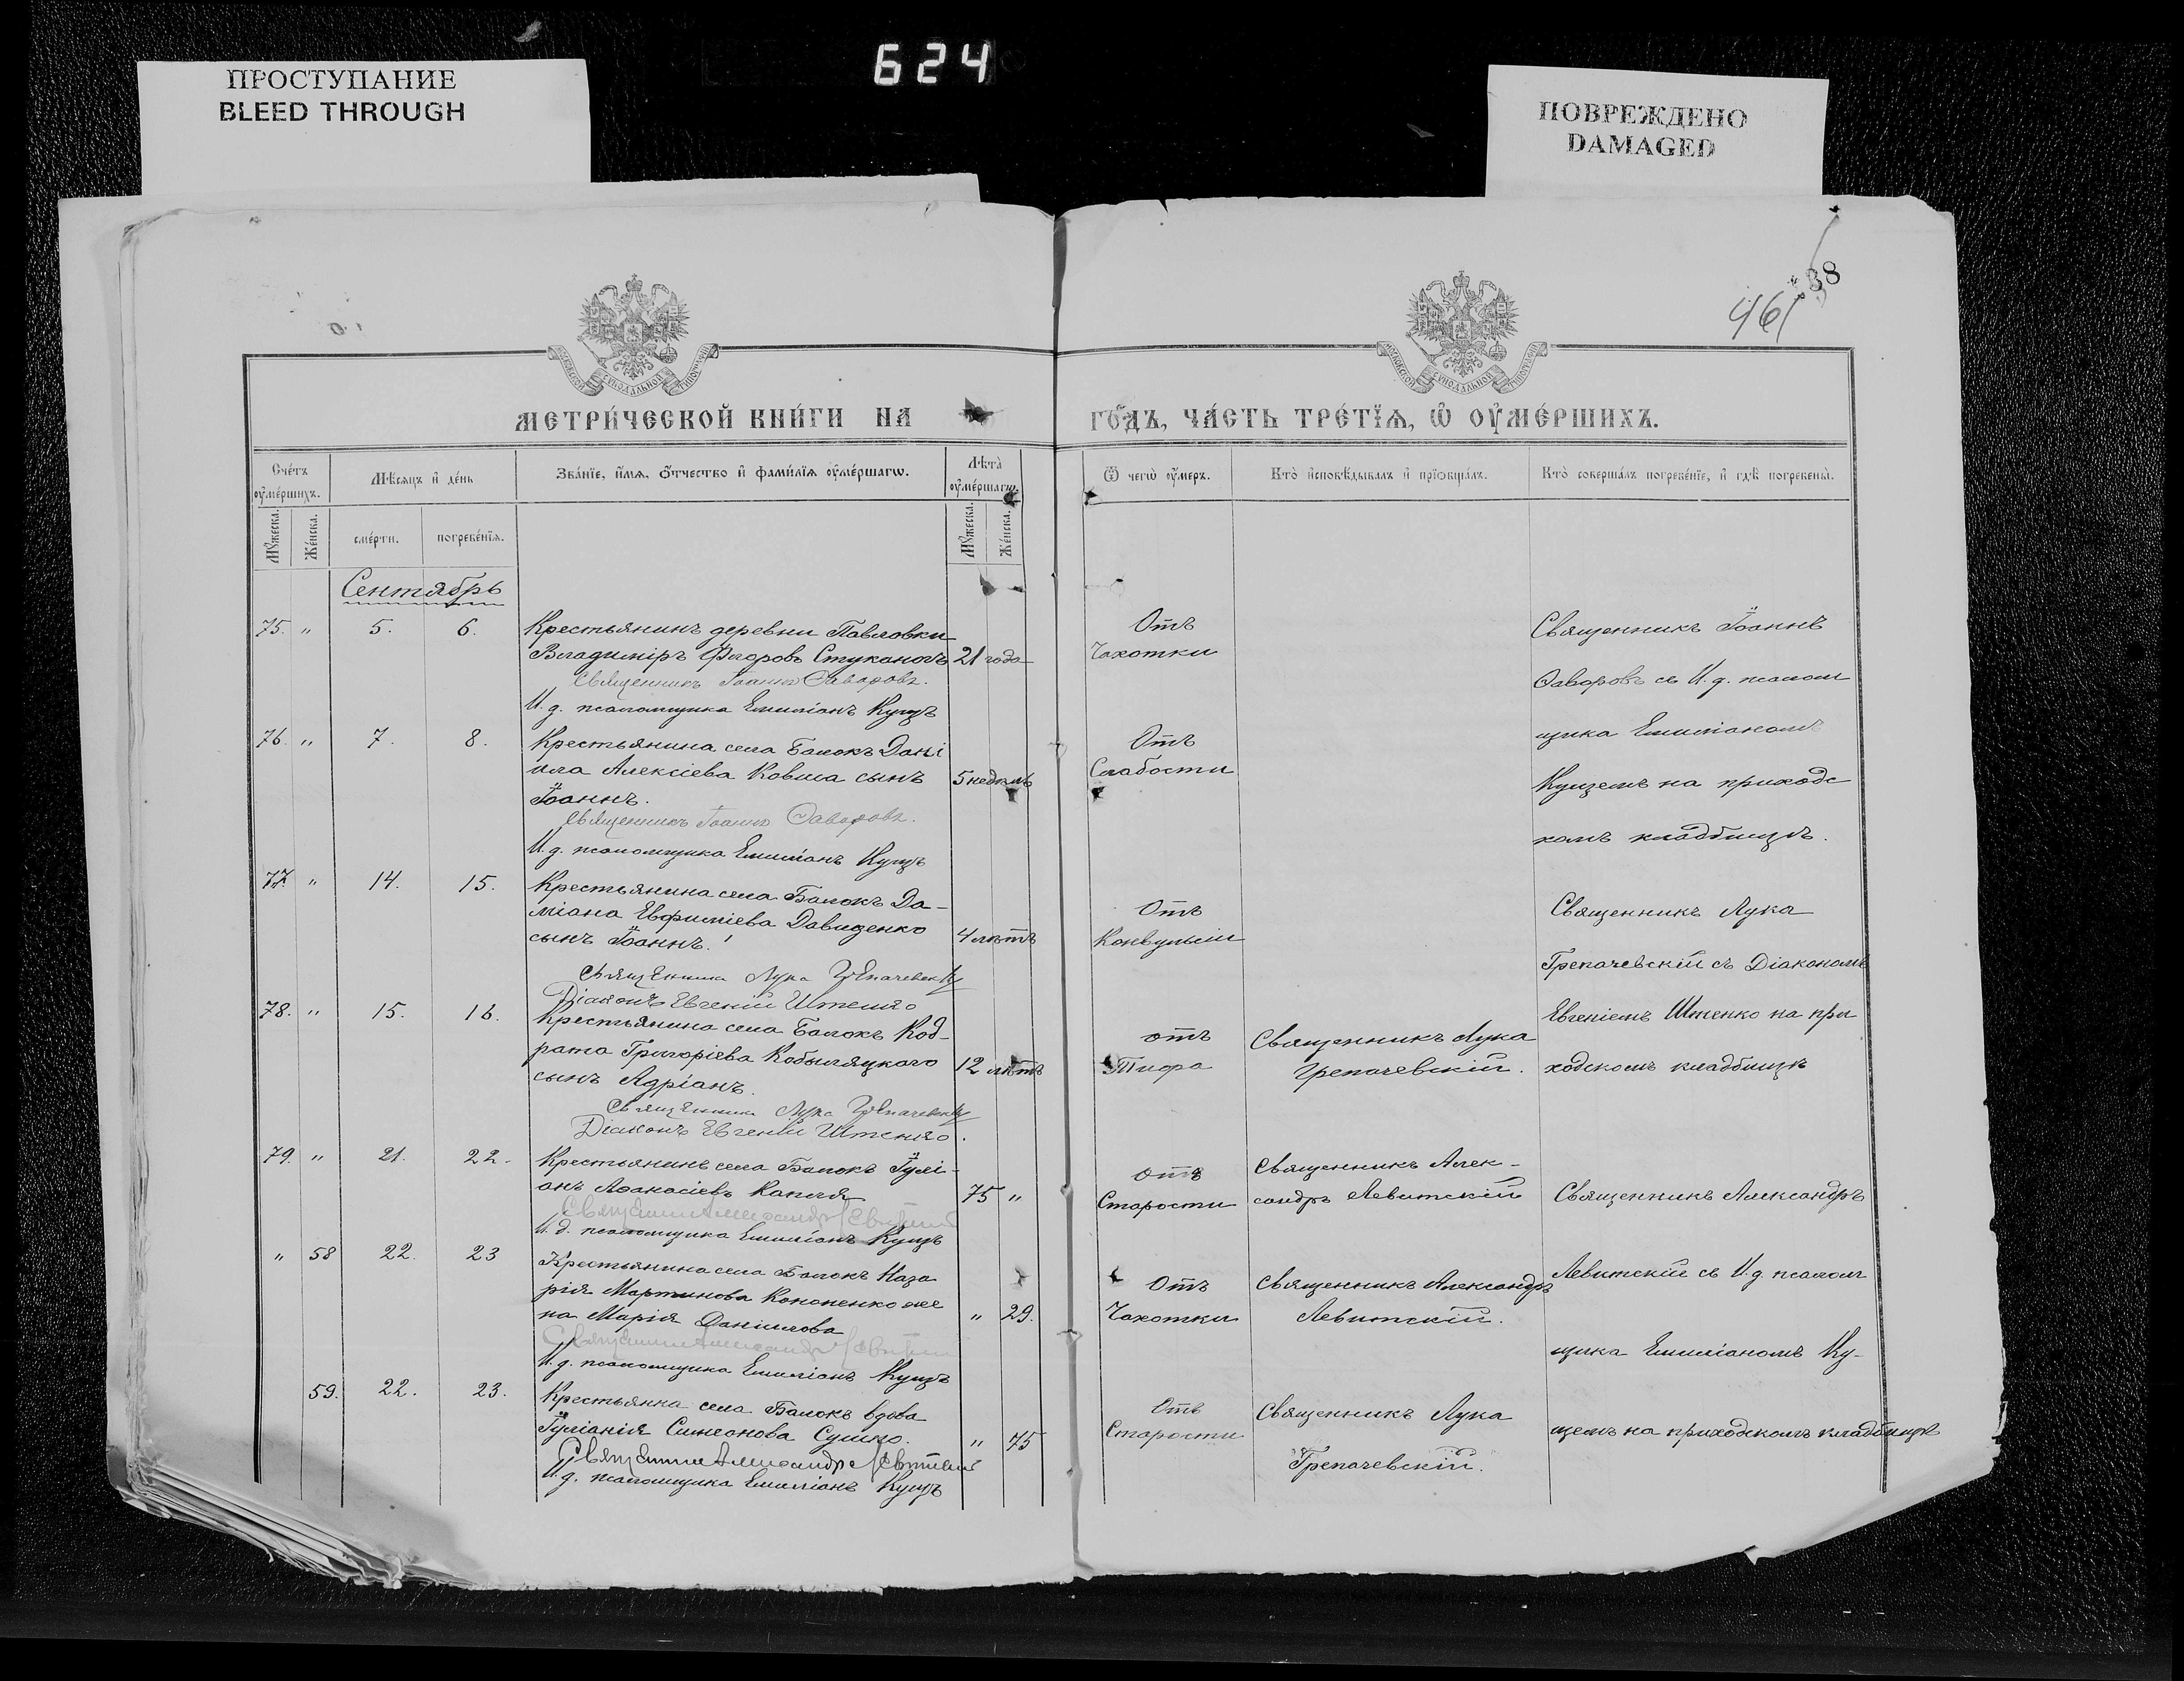 624
ПРОСТУПАНИЕ
BLEED THROUGH
ПОВРЕЖДЕНО
DAMAGED
38
461
МЕТРИ́ЧЕСКОЙ КНИ́ГИ НА
ГО́ДЪ, ЧА́СТЬ ТРЕ́ТЇѦ, Ѡ҆ ОУ҆МЕ́РШИХЪ.
Сче́тъ оу҆ме́ршихъ.
Мѣ́сяцъ и҆ де́нь
Зва́нїе, и҆́мѧ, ѻ҆́тчество и҆ фами́лїѧ оу҆ме́ршагѡ.
Лѣ́та оу҆ме́ршагѡ.
Ѿ чегѡ̀ оу҆́меръ.
Кто̀ и҆сповѣ́дывалъ и҆ прїѡбща́лъ.
Кто̀ соверша́лъ погребе́нїе, и҆ гдѣ̀ погребены̀.
Мꙋ́жеска.
Же́нска.
сме́рти.
погребе́нїѧ.
Мꙋ́жеска.
Же́нска.
Сентябрь
75. " 5. 6.
Крестьянинъ деревни Павловки
Владимiръ Ѳедоровъ Стукановъ 21 года
Священникъ Iоаннъ Ѳаворовъ.
И. д. псаломщика Емилiанъ Кущъ
Отъ
Чахотки
Священникъ Iоаннъ
Ѳаворовъ съ И. д. псалом
щика Емилiаномъ
Кущемъ на приходс
комъ кладбищѣ.
76. " 7. 8.
Крестьянина села Балокъ Данi
ила Алексiева Ковша сынъ 5 недѣль
Iоаннъ.
Священникъ Iоаннъ Ѳаворовъ.
И. д. псаломщика Емилiанъ Кущъ
Отъ
Слабости
77. " 14. 15.
Крестьянина села Балокъ Да-
мiана Евфимiева Давиденко
сынъ Iоаннъ. 4 лѣтъ
Священникъ Лука Грепачевскiй
Дiаконъ Евгенiй Штенко
Отъ
Конвульсiи
Священникъ Лука
Грепачевскiй съ Дiакономъ
Евгенiемъ Штенко на при
ходскомъ кладбищѣ
78. " 15. 16.
Крестьянина села Балокъ Код-
рата Григорiева Кобыляцкаго 12 лѣтъ
сынъ Адрiанъ.
Священникъ Лука Грепачевскiй
Дiаконъ Евгенiй Штенко.
отъ
Тифа
Священникъ Лука
Грепачевскiй.
79. " 21. 22.
Крестьянинъ села Балокъ Iулi-
анъ Аѳанасiевъ Капля 75 "
Священникъ Александръ Левитскiй
И. д. псаломщика Емилiанъ Кущъ
отъ
Старости
Священникъ Алек-
сандръ Левитскiй
Священникъ Александръ
Левитскiй съ И. д. псалом
щика Емилiаномъ Ку-
щемъ на приходскомъ кладбищѣ
" 58 22. 23
Крестьянина села Балокъ Наза
рiя Мартинова Кононенко же
на Марiя Данiилова " 29.
Священникъ Александръ Левитскiй
И. д. псаломщика Емилiанъ Кущъ
Отъ
Чахотки
Священникъ Александръ
Левитскiй.
59. 22. 23.
Крестьянка села Балокъ вдова
Iулiанiя Симеонова Сушко. " 75
Священникъ Александръ Левитскiй
И. д. псаломщика Емилiанъ Кущъ
Отъ
Старости
Священникъ Лука
Грепачевскiй.